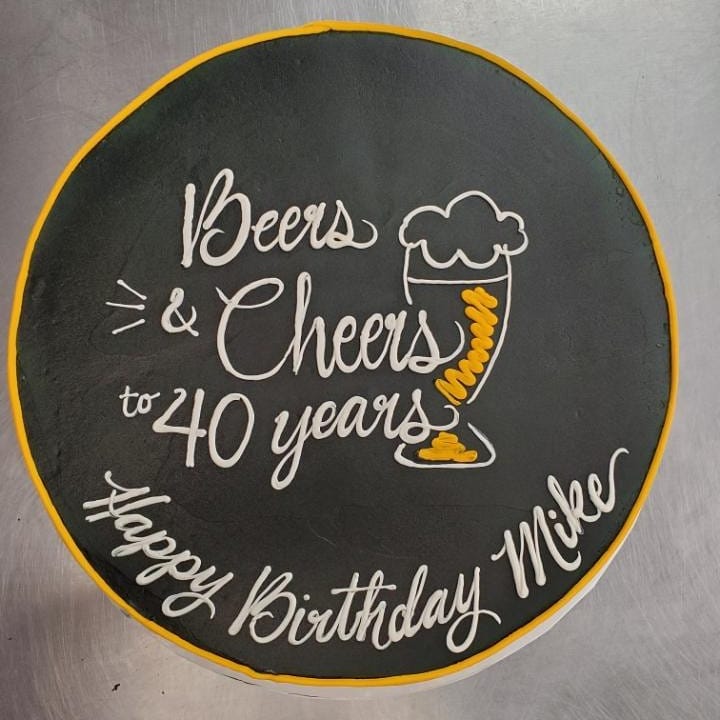 Beers
& Cheers
to 40 years
Happy Birthday Mike